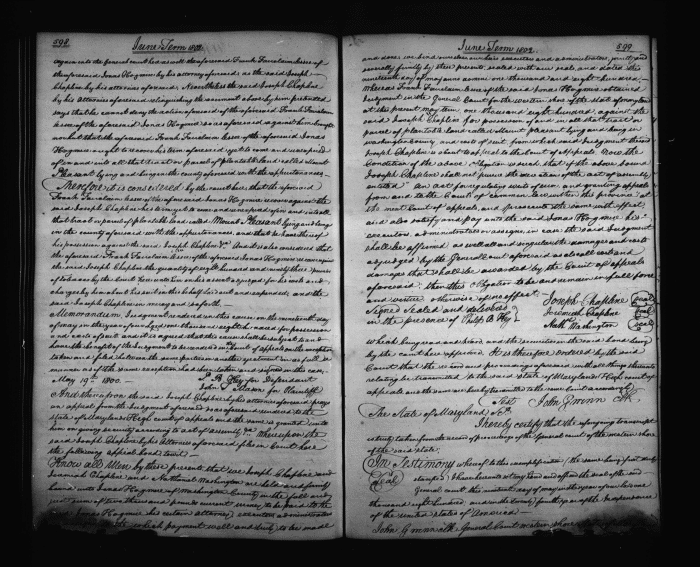 598
June Term 1802.
against the General court here as well the aforesaid Frank Fureluin lessee of
the aforesaid Jonas Hogmire by his attorney aforesaid, as the said Joseph
Chapline by his attorney aforesaid. Nevertheless the said Joseph Chapline
by his attorney aforesaid relinquishing the account above by him pretended
says that he cannot deny the action aforesaid of the aforesaid Frank Fureluin
lessee of the aforesaid Jonas Hogmire as is aforesaid against him
nor but that the aforesaid Frank Fureluin lessee of the aforesaid Jonas
Hogmire ought to recover his term aforesaid yet to come and unexpired
of and into all that tract or parcel of plantable land called Mount
Pleasant lying and being in the county aforesaid with the appurtenances
Therefore it is considered by the court here that the aforesaid
Frank Fureluin lessee of the aforesaid Jonas Hogmire recover against the
said Joseph Chapline his term yet to come and unexpired of and into all
that tract or parcel of plantable land called Mount Pleasant lying and being
in the county aforesaid with the appurtenances, and that he have thereof
his possession against the said Joseph Chapline &c. And it is also considered that
the aforesaid Frank Fureluin lessee of the aforesaid Jonas Hogmire recover against
the said Joseph Chapline the quantity of eight hundred and ninety three pounds
of tobacco by the Court here unto him on his assent adjudged for his costs and
charges by him about his suit in this behalf laid out and expended, and the
said Joseph Chapline in mercy and so forth.
Memorandum, Judgment rendered in this cause on the nineteenth day
of May in the year of our Lord one thousand eight hundred for possession
and costs of suit and it is agreed that this cause shall be subject to and
have the benefit of the Judgment to be rendered in Court of appeals on the exception
taken and filed between the same parties in another ejectment in as full
manner as if the same exception had been taken and signed in this case
May 19th. 1800.
P. B. Key for Defendant
John T. Mason for Plaintiff
And thereupon the said Joseph Chapline by his attorney aforesaid prays
an appeal from the Judgment aforesaid so as aforesaid rendered to the
State of Maryland High court of appeals and the same is granted unto
him on giving security according to act of assembly &c. Whereupon the
said Joseph Chapline by his attorney aforesaid files in Court here
the following appeal bond, to wit:
Know all Men by these presents that we Joseph Chapline and
Jeremiah Chapline and Nathaniel Washington are held and firmly
bound unto Jonas Hogmire of Washington County in the full and
just sum of two thousand pounds current money, to be paid to the
said Jonas Hogmire his certain attorney, executors administrators
which payment well and truly to be made
June Term 1802.
599
and done, we bind ourselves our heirs executors and administrators, jointly and
severally firmly by these presents sealed with our seals and dated this
nineteenth day of May anno domini one thousand and eight hundred.
Whereas Frank Fureluin lessee of the said Jonas Hogmire obtained
Judgment in the General Court for the western shore of the state of Maryland
at this present May term one thousand eight hundred, against the
said Joseph Chapline for possession of and in all that tract or
parcel of plantable land called Mount pleasant lying and being in
Washington County, and costs of suit from which said Judgment the said
Joseph Chapline is about to appeal to the Court of appeals. Now the
Condition of the above Obligation is such, that if the above bound
Joseph Chapline shall not pursue the direction of the act of assembly
entitled "An act for regulating writs of error and granting appeals
from and to the Courts of common law within this province" at
the next Court of appeals and prosecute the same with effect,
and also satisfy and pay unto the said Jonas Hogmire his
executors administrators or assigns, in case the said Judgment
shall be affirmed as well all and singular the damages and costs
adjudged by the General Court aforesaid as also all costs and
damages that shall be awarded by the Court of appeals
aforesaid, then this Obligation to be and remain in full force
and virtue otherwise of no effect.
Signed Sealed and delivered
in the presence of Philip B. Key
Joseph Chapline Seal
Jeremiah Chapline Seal
Nath Washington Seal
which being read and heard, and the securities in the said bond being
by the court here approved. It is therefore ordered by the said
Court that the record and proceedings aforesaid with all things thereunto
relating be transmitted to the said State of Maryland High court of
appeals and the same are hereby transmitted to the same Court accordingly
Test John Gwinn Clk
The State of Maryland Sct.
I hereby certify that the aforegoing transcript
is truly taken from the record of proceedings of the General court of the western shore
of the said state.
In Testimony whereof to this exemplification, the same being first duly
Seal
stamped I have hereunto set my hand and affixed the seal of the said
General court this nineteenth day of May in the year of our Lord one
thousand eight hundred and in the twenty fourth year of the Independence
of the united states of America.
John Gwinn Clk General Court western shore